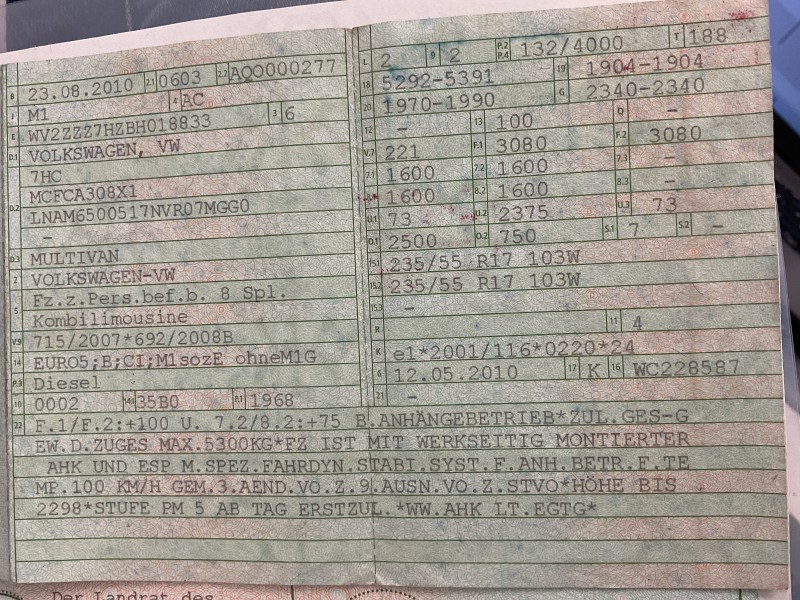 B 23.08.2010 2.1 0603 2.2 AQO000277
J M1 4 AC
E WV2ZZZ7HZBH018833 3 6
D.1 VOLKSWAGEN, VW
7HC
D.2 MCFCA308X1
LNAM6500517NVR07MGG0
–
D.3 MULTIVAN
2 VOLKSWAGEN-VW
5 Fz.z.Pers.bef.b. 8 Spl.
Kombilimousine
V.9 715/2007*692/2008B
14 EURO5;B;CI;M1sozE ohneM1G
P.3 Diesel
10 0002 14.1 35B0 P.1 1968
L 2 9 2 P.2 P.4 132/4000 T 188
18 5292-5391 19 1904-1904
20 1970-1990 G 2340-2340
12 – 13 100 Q –
V.7 221 F.1 3080 F.2 3080
7.1 1600 7.2 1600 7.3 –
8.1 1600 8.2 1600 8.3 –
U.1 73 U.2 2375 U.3 73
O.1 2500 O.2 750 S.1 7 S.2 –
15.1 235/55 R17 103W
15.2 235/55 R17 103W
15.3 –
R 11 4
K e1*2001/116*0220*24
6 12.05.2010 17 K 16 WC228587
21 –
22 F.1/F.2:+100 U. 7.2/8.2:+75 B.ANHÄNGEBETRIEB*ZUL.GES-G
EW.D.ZUGES MAX.5300KG*FZ IST MIT WERKSEITIG MONTIERTER
AHK UND ESP M.SPEZ.FAHRDYN.STABI.SYST.F.ANH.BETR.F.TE
MP.100 KM/H GEM.3.AEND.VO.Z.9.AUSN.VO.Z.STVO*HÖHE BIS
2298*STUFE PM 5 AB TAG ERSTZUL.*WW.AHK LT.EGTG*
Der Landrat des